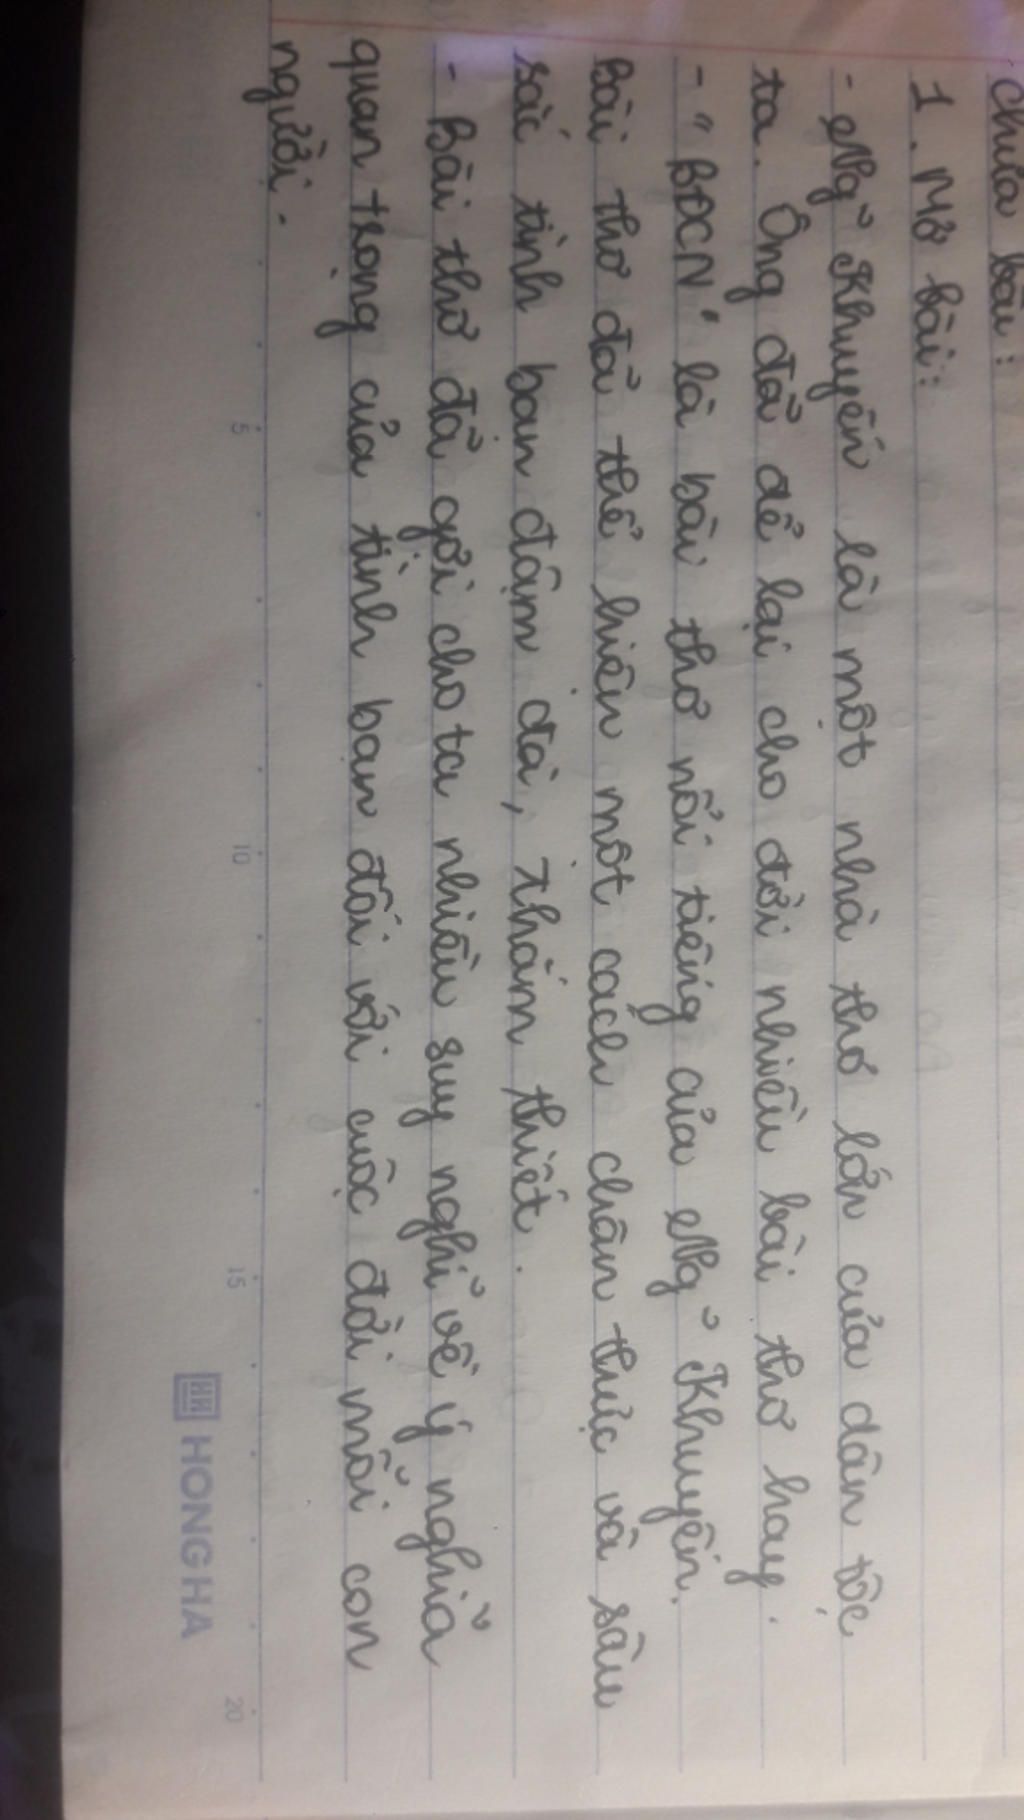 chữa bài:
1. Mở bài:
- Ng~ Khuyến là một nhà thơ lớn của dân tộc
ta. Ông đã để lại cho đời nhiều bài thơ hay.
- "BĐCN" là bài thơ nổi tiếng của Ng~ Khuyến.
Bài thơ đã thể hiện một cách chân thực và sâu
sắc tình bạn đậm đà, thắm thiết.
- Bài thơ đã gợi cho ta nhiều suy nghĩ về ý nghĩa
quan trọng của tình bạn đối với cuộc đời mỗi con
người.
5 10 15 20
HONG HA